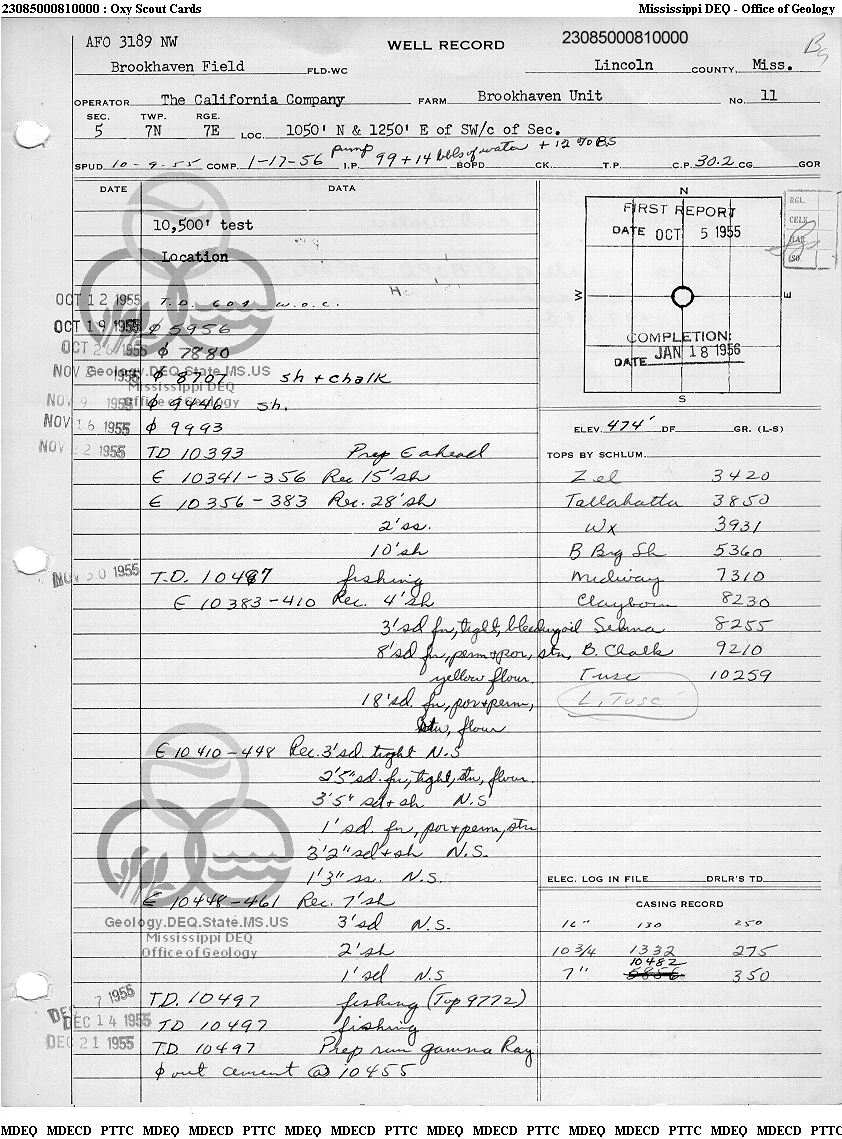 23085000810000 : Oxy Scout Cards Mississippi DEQ - Office of Geology
AFO 3189 NW WELL RECORD 23085000810000
Brookhaven Field FLD-WC Lincoln COUNTY, Miss.
OPERATOR The California Company FARM Brookhaven Unit No. 11
SEC. TWP. RGE.
5 7N 7E LOC. 1050' N & 1250' E of SW/c of Sec.
pump
SPUD 10-9-55 COMP. 1-17-56 I.P. 99 + 14 bbls of water + 12 % BS BOPD CK. T.P. C.P. 30.2 CG GOR
DATE DATA
10,500' test
Location
OCT 12 1955 T.D. 609 W.O.C.
OCT 19 1955 φ 5956
OCT 26 1955 φ 7880
NOV 1955 φ 8707 sh + chalk
NOV 9 1955 φ 9446 sh.
NOV 16 1955 φ 9993
NOV 22 1955 TD 10393 Prep C ahead
C 10341-356 Rec 15' sh
C 10356-383 Rec. 28' sh
2' ss.
10' sh
NOV 30 1955 T.D. 10497 fishing
C 10383-410 Rec. 4' sh
3' sd fn, tight, bleeding oil
8' sd fn, perm + por, stn,
yellow flour.
18' sd. fn, por + perm,
stn, flour
C 10410-448 Rec. 3' sd. tight N.S
2'5" sd. fn, tight, stn, flour.
3'5" sd + sh N.S
1' sd. fn, por + perm, stn
3'2" sd + sh N.S.
1'3" ss. N.S.
C 10448-461 Rec. 7' sh
3' sd N.S.
2' sh
1' sd N.S
DEC 7 1955 T.D. 10497 fishing (Top 9772)
DEC 14 1955 TD 10497 fishing
DEC 21 1955 T.D. 10497 Prep run gamma Ray
φ out cement @ 10455
N
FIRST REPORT
DATE OCT 5 1955
W E
COMPLETION:
DATE JAN 18 1956
S
RGL
CELX
HAR
ISO
ELEV. 474' DF GR. (L-S)
TOPS BY SCHLUM.
Zel 3420
Tallahatta 3850
Wx 3931
B Big Sh 5360
Midway 7310
Clayborn 8230
Selma 8255
B. Chalk 9210
Tusc 10259
L. Tusc
ELEC. LOG IN FILE DRLR'S TD
CASING RECORD
16" 130 250
10 3/4 1332 275
10482
7" 5856 350
Geology.DEQ.State.MS.US
Mississippi DEQ
Office of Geology
Geology.DEQ.State.MS.US
Mississippi DEQ
Office of Geology
MDEQ MDECD PTTC MDEQ MDECD PTTC MDEQ MDECD PTTC MDEQ MDECD PTTC MDEQ MDECD PTTC MDEQ MDECD PTTC